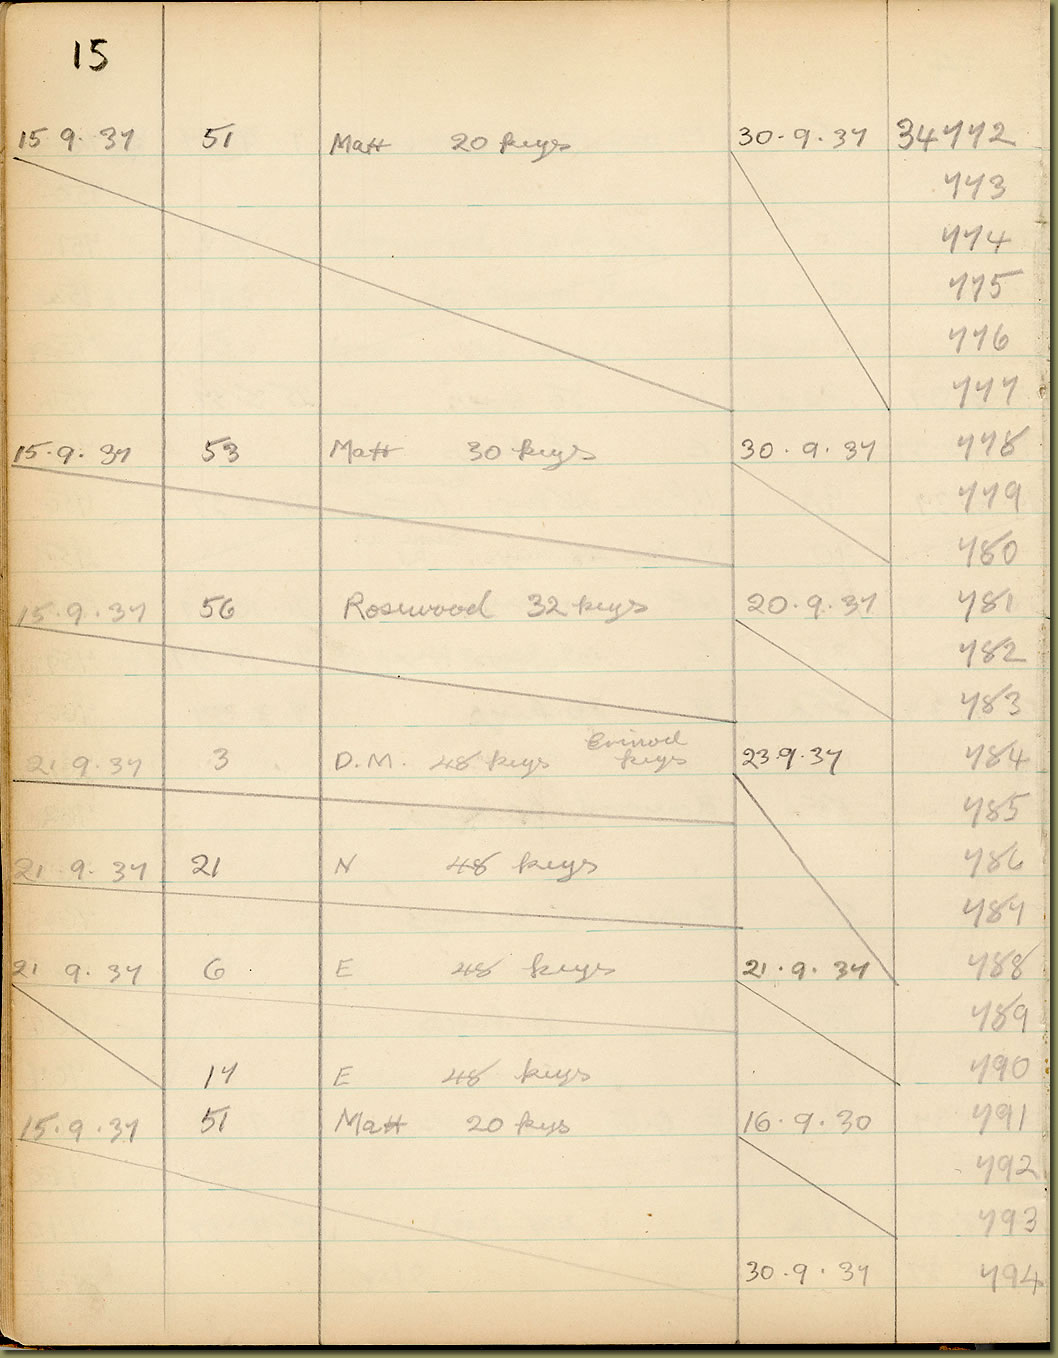 15
15.9.37 51 Matt 20 keys 30.9.37 34772
773
774
775
776
777
15.9.37 53 Matt 30 keys 30.9.37 778
779
780
15.9.37 56 Rosewood 32 keys 20.9.37 781
782
783
21.9.37 3 D.M. 48 keys Erinoid keys 23.9.37 784
785
21.9.37 21 N 48 keys 786
787
21 9.37 6 E 48 keys 21.9.37 788
789
17 E 48 keys 790
15.9.37 51 Matt 20 keys 16.9.30 791
792
793
30.9.37 794